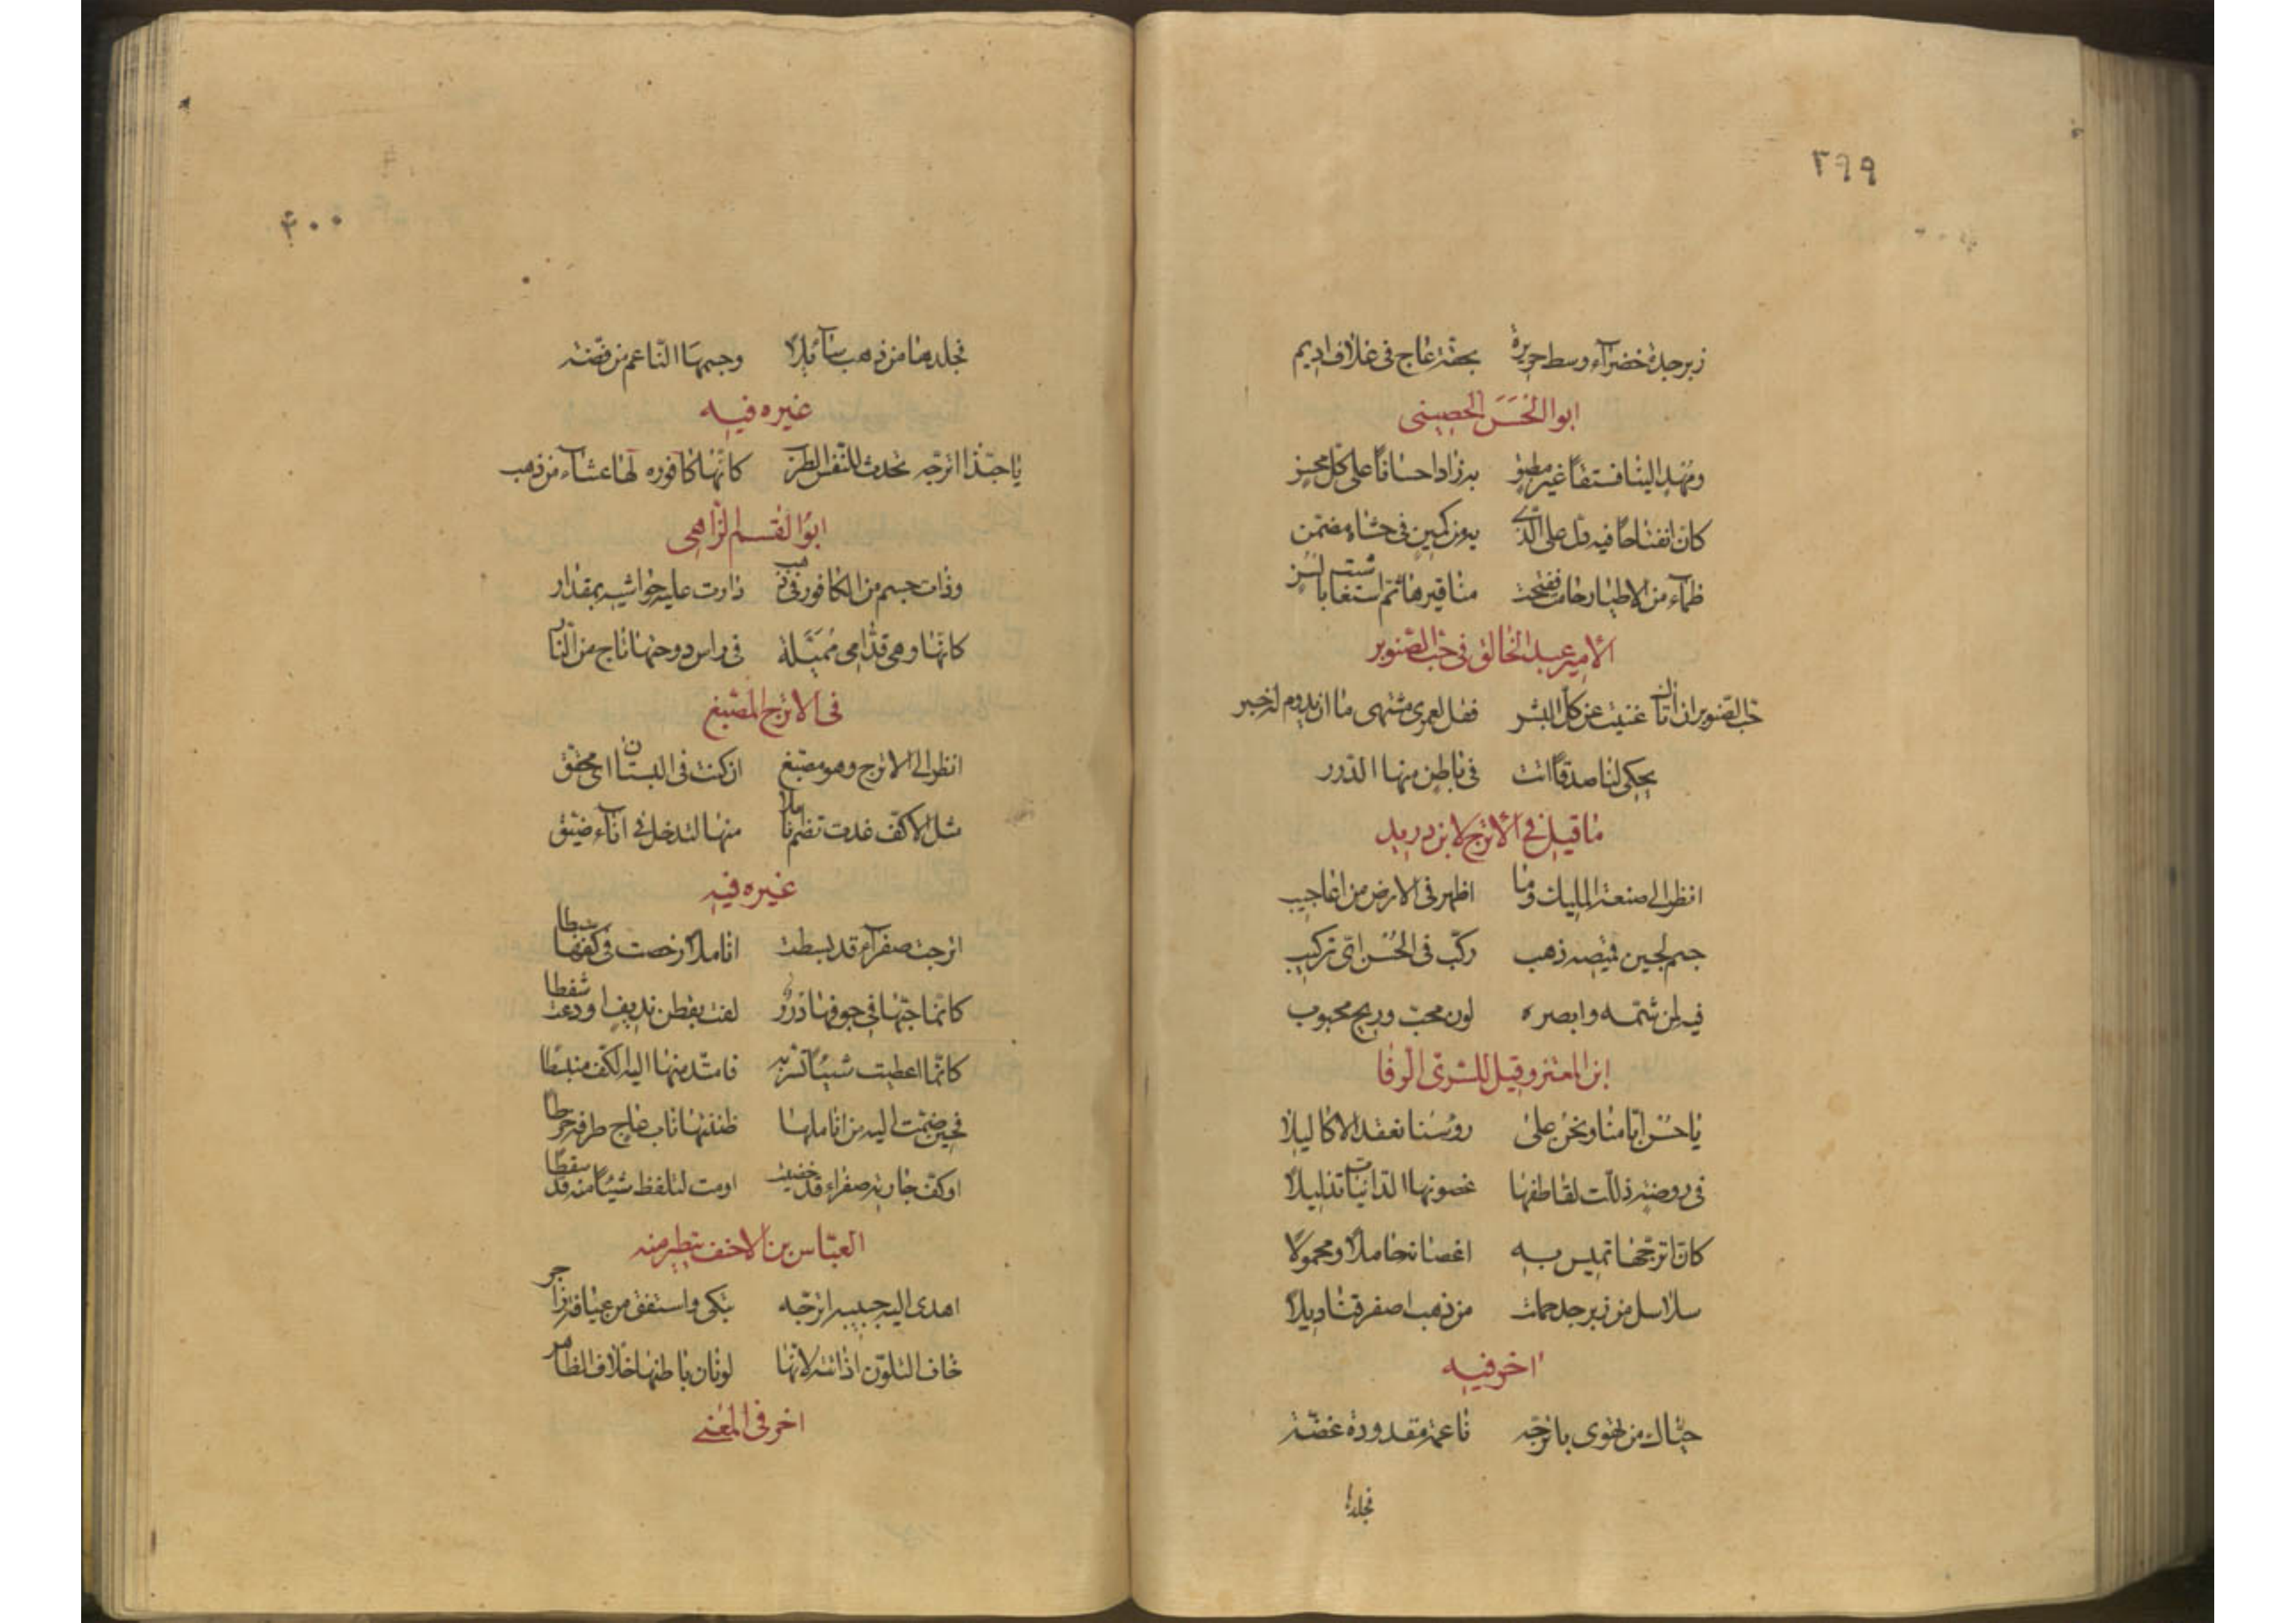 ٣٩٩
زبرجدة خضرآء وسط حريرة بحقة عاج فى غلاف اديم
ابو الحسن الحصينى
ومهد الينا فستقا غير مطبق به زاد احسانا على كل محسن
كان انفتاحا فيه دل على الذى به من كمين فى حشاه مضمن
ظمآء من الاطيار حامت ففتحت مناقيرها ثم استغاثت بالسن
الامير عبد الخالق فى حب الصنوبر
حب الصنوبر ان اتانا غنيت عن كل البشر فقل لعمرى مشتهى ما ان يدوم له خبر
يحكى لنا صدقا اتت فى باطن منها الدرر
ما قيل فى الاترج لابن دريد
انظر الى صنعة المليك وما اظهر فى الارض من اعاجيب
جسم لجين قميصه ذهب ركب فى الحسن اى تركيب
فيه لمن شمه وابصره لون محب وريح محبوب
ابن المعتز وقيل للسرى الرفا
يا حسن ايامنا ونحن على روسنا نعقد الاكاليلا
فى روضة ذللت لقاطفها غصونها الدانيات تذليلا
كان اترجها تميس به اغصانه حاملا ومحمولا
سلاسل من زبرجد حملت من ذهب اصفر قناديلا
اخر فيه
حياك من تهوى باترجه ناعمة مقدودة غضة
فجلدها
۴۰۰
فجلدها من ذهب سآئلا وجسمها الناعم من فضة
غيره فيه
يا حبذا اترجه تحدث للنفس الطرب كانها كافوره لها غشآء من ذهب
ابو القسم الزاهى
وذات جسم من الكافور فى ذهب دارت عليه حواشيه بمقدار
كانها وهى قدامى ممثلة فى راس دوحتها تاج من النار
فى الاترج المصبغ
انظر الى الاترج وهو مصبغ ان كنت فى البستان اى محقق
مثل الاكف غدت تضم اناملا منها لتدخل فى انآء ضيق
غيره فيه
اترجت صفرآء قد بسطت اناملا رخصت وكفها سبطا
كانما حبها فى جوفها درر لفت بقطن نديف اودعت سفطا
كانما اعطيت شيئا تسر به فامتد منها اليه الكف منبسطا
فحين ضمت اليه من اناملها ظننتها ناب عاج طرفه خرطا
او كف جارية صفراء قد خضبت اومت لتلفظ شيئا منه قد سقطا
العباس بن الاحنف يتطير منه
اهدى اليه حبيبه اترجه فبكى واستفق من عيافة زاجر
خاف التلون اذ اتته لانها لونان باطنها خلاف الظاهر
اخر فى المعنى